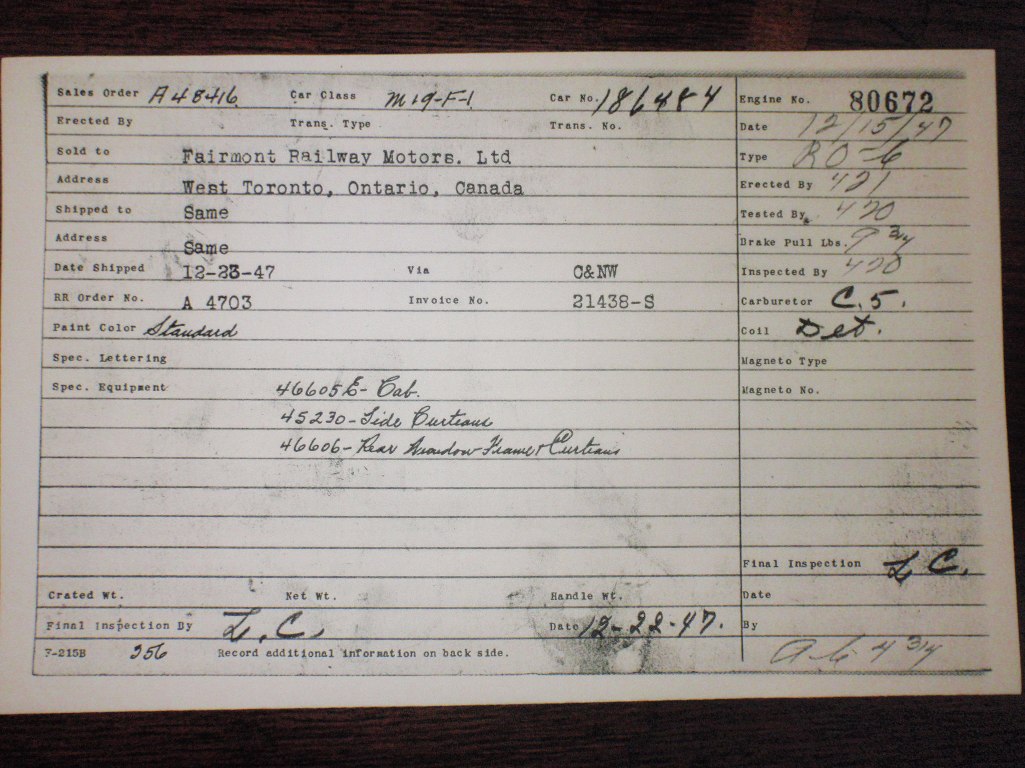 Sales Order A48416 Car Class M19-F-1 Car No. 186484 Engine No. 80672
Erected By Trans. Type Trans. No. Date 12/15/47
Sold to Fairmont Railway Motors. Ltd Type RO-6
Address West Toronto, Ontario, Canada Erected By 421
Shipped to Same Tested By 420
Address Same Brake Pull Lbs. 9 3/4
Date Shipped 12-23-47 Via C&NW Inspected By 420
RR Order No. A 4703 Invoice No. 21438-S Carburetor C.5.
Paint Color Standard Coil Det.
Spec. Lettering Magneto Type
Spec. Equipment 46605E- Cab. Magneto No.
45230-Side Curtains
46606-Rear Window Frame & Curtains
Final Inspection L C.
Crated Wt. Net Wt. Handle Wt. Date
Final Inspection By L.C. Date 12-22-47. By
F-215B 356 Record additional information on back side.